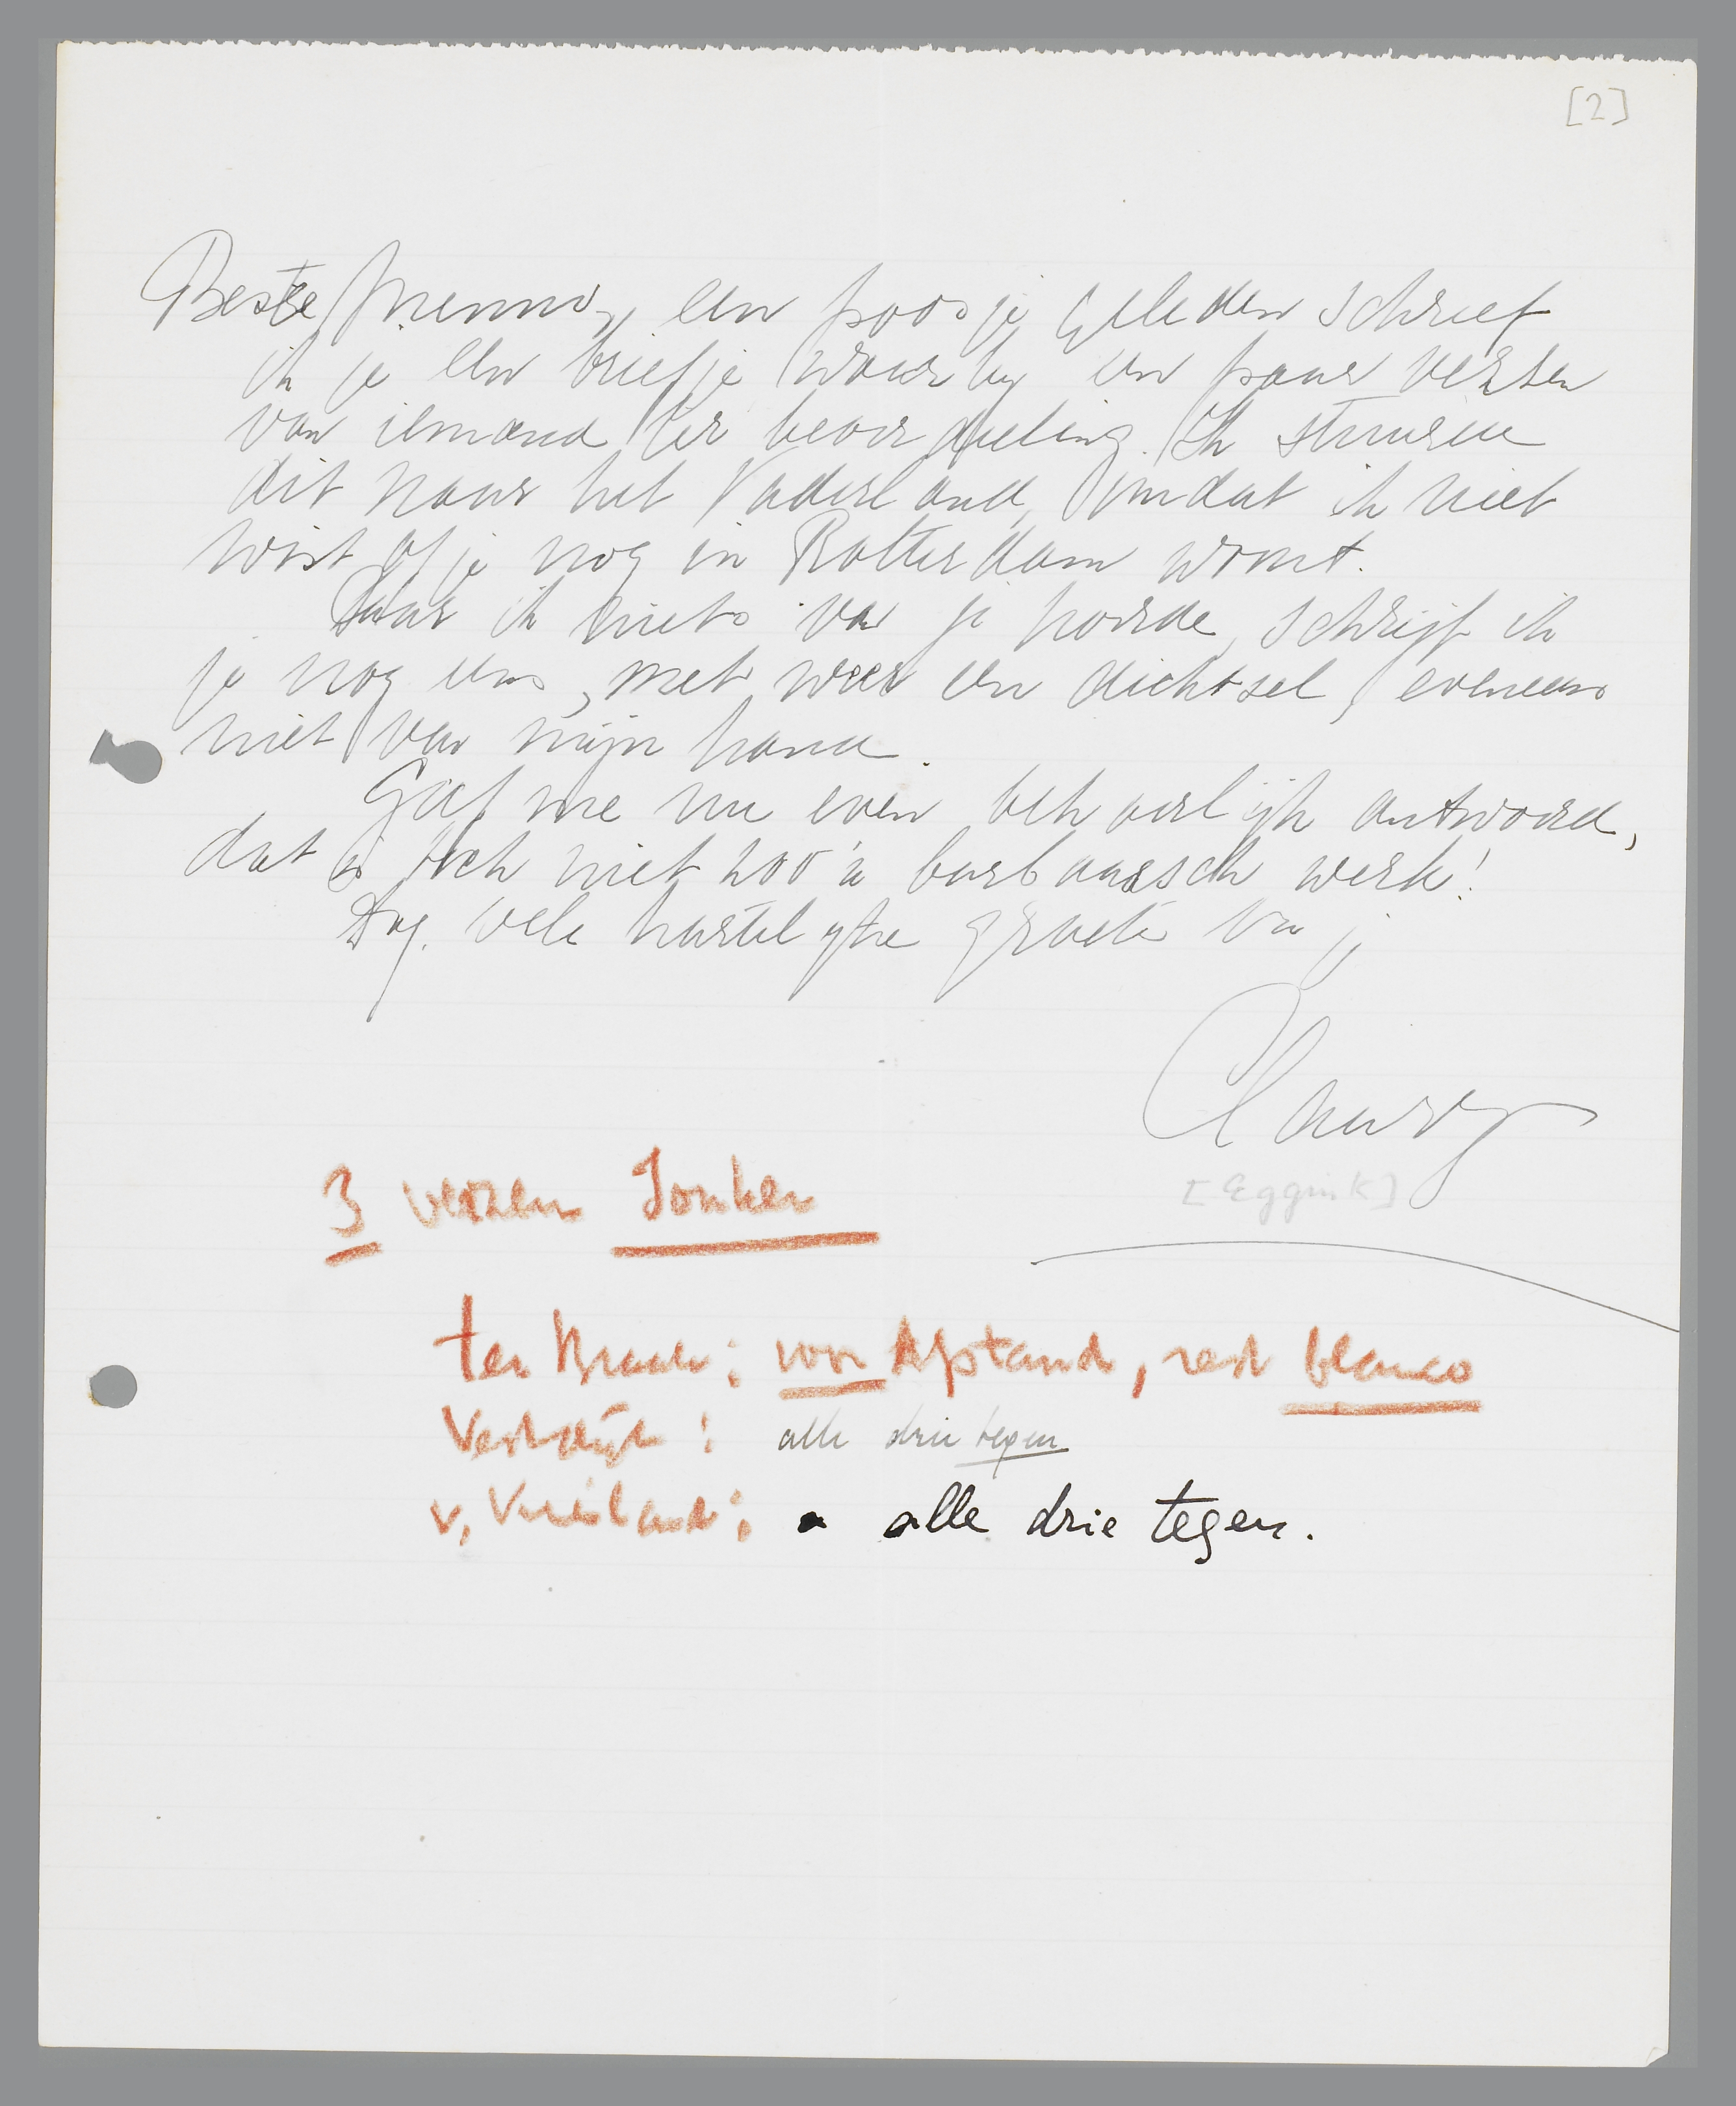 [2]
Beste Menno, een poosje geleden schreef
ik je een briefje waarby een paar verzen
van iemand ter beoordeeling. Ik stuurde
dit naar het Vaderland, omdat ik niet
wist of je nog in Rotterdam woont.
Daar ik niets van je hoorde, schrijf ik
je nog eens, met weer een dichtsel, eveneens
niet van mijn hand.
Geef me nu even behoorlijk antwoord,
dat is toch niet zoo'n barbaarsch werk!
Dag. vele hartelyke groeten van je
Clary
[Eggink]
3 verzen Jonker
ter Braak: voor Afstand, rest blanco
Vestdijk: alle drie tegen
v. Vriesland: alle drie tegen.